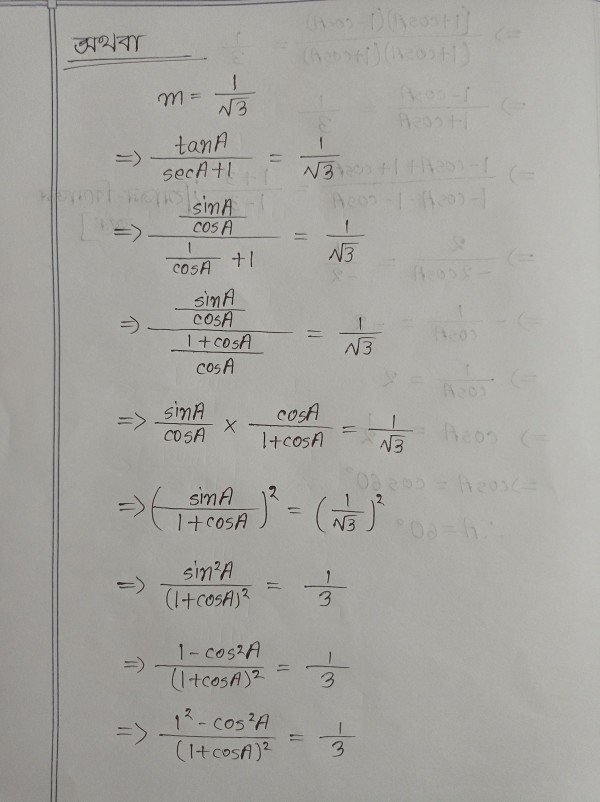 অথবা
m = 1/√3
=> tanA/(secA+1) = 1/√3
=> (sinA/cosA)/(1/cosA +1) = 1/√3
=> (sinA/cosA)/((1+cosA)/cosA) = 1/√3
=> sinA/cosA × cosA/(1+cosA) = 1/√3
=> (sinA/(1+cosA))² = (1/√3)²
=> sin²A/(1+cosA)² = 1/3
=> (1-cos²A)/(1+cosA)² = 1/3
=> (1²-cos²A)/(1+cosA)² = 1/3